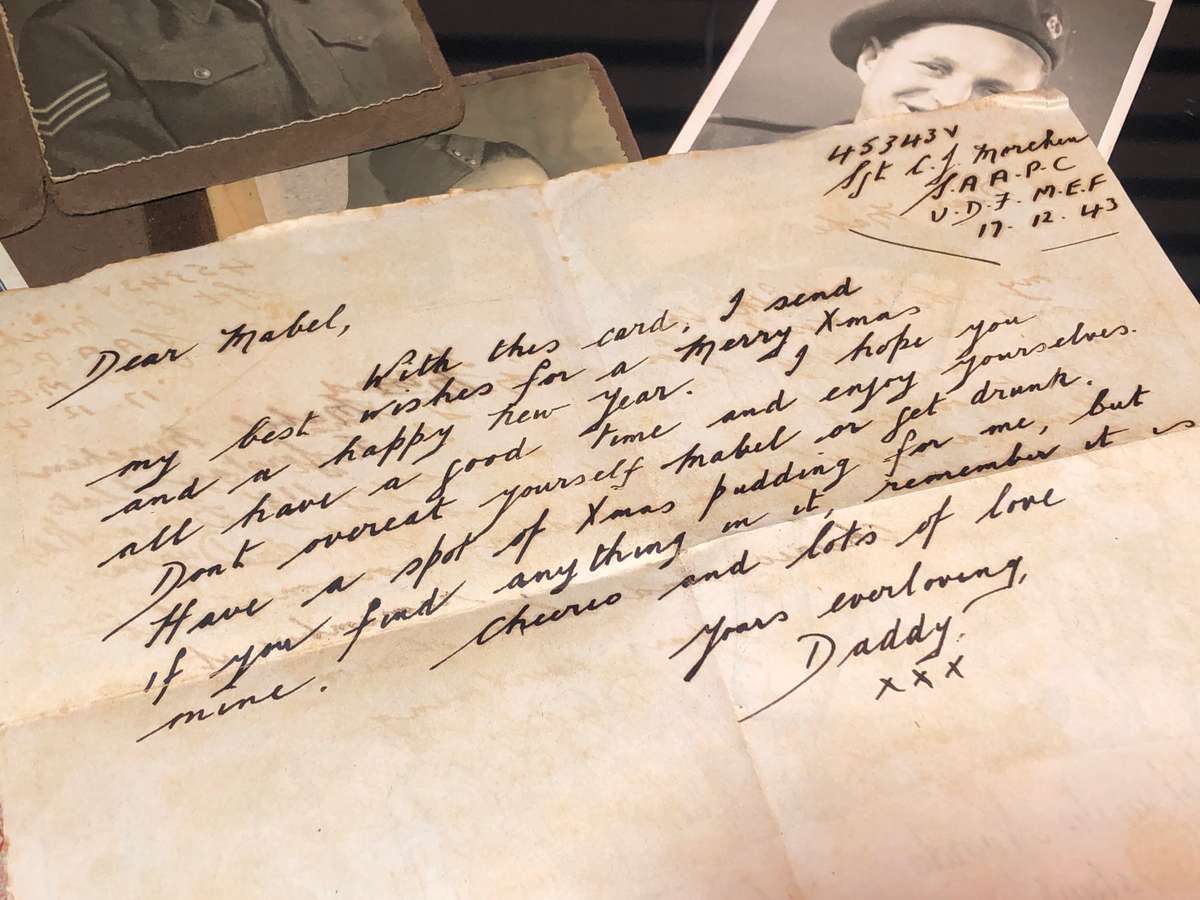 45343V
Sgt C.J. Morchen
S.A.A.P.C
U.D.F. M.E.F
17. 12. 43
Dear Mabel,
With this card, I send
my best wishes for a Merry Xmas
and a happy new year. I hope you
all have a good time and enjoy yourselves.
Dont overeat yourself Mabel or get drunk.
Have a spot of Xmas pudding for me, but
if you find anything in it, remember it is
mine. Cheerio and lots of love
Yours everloving,
Daddy.
xxx